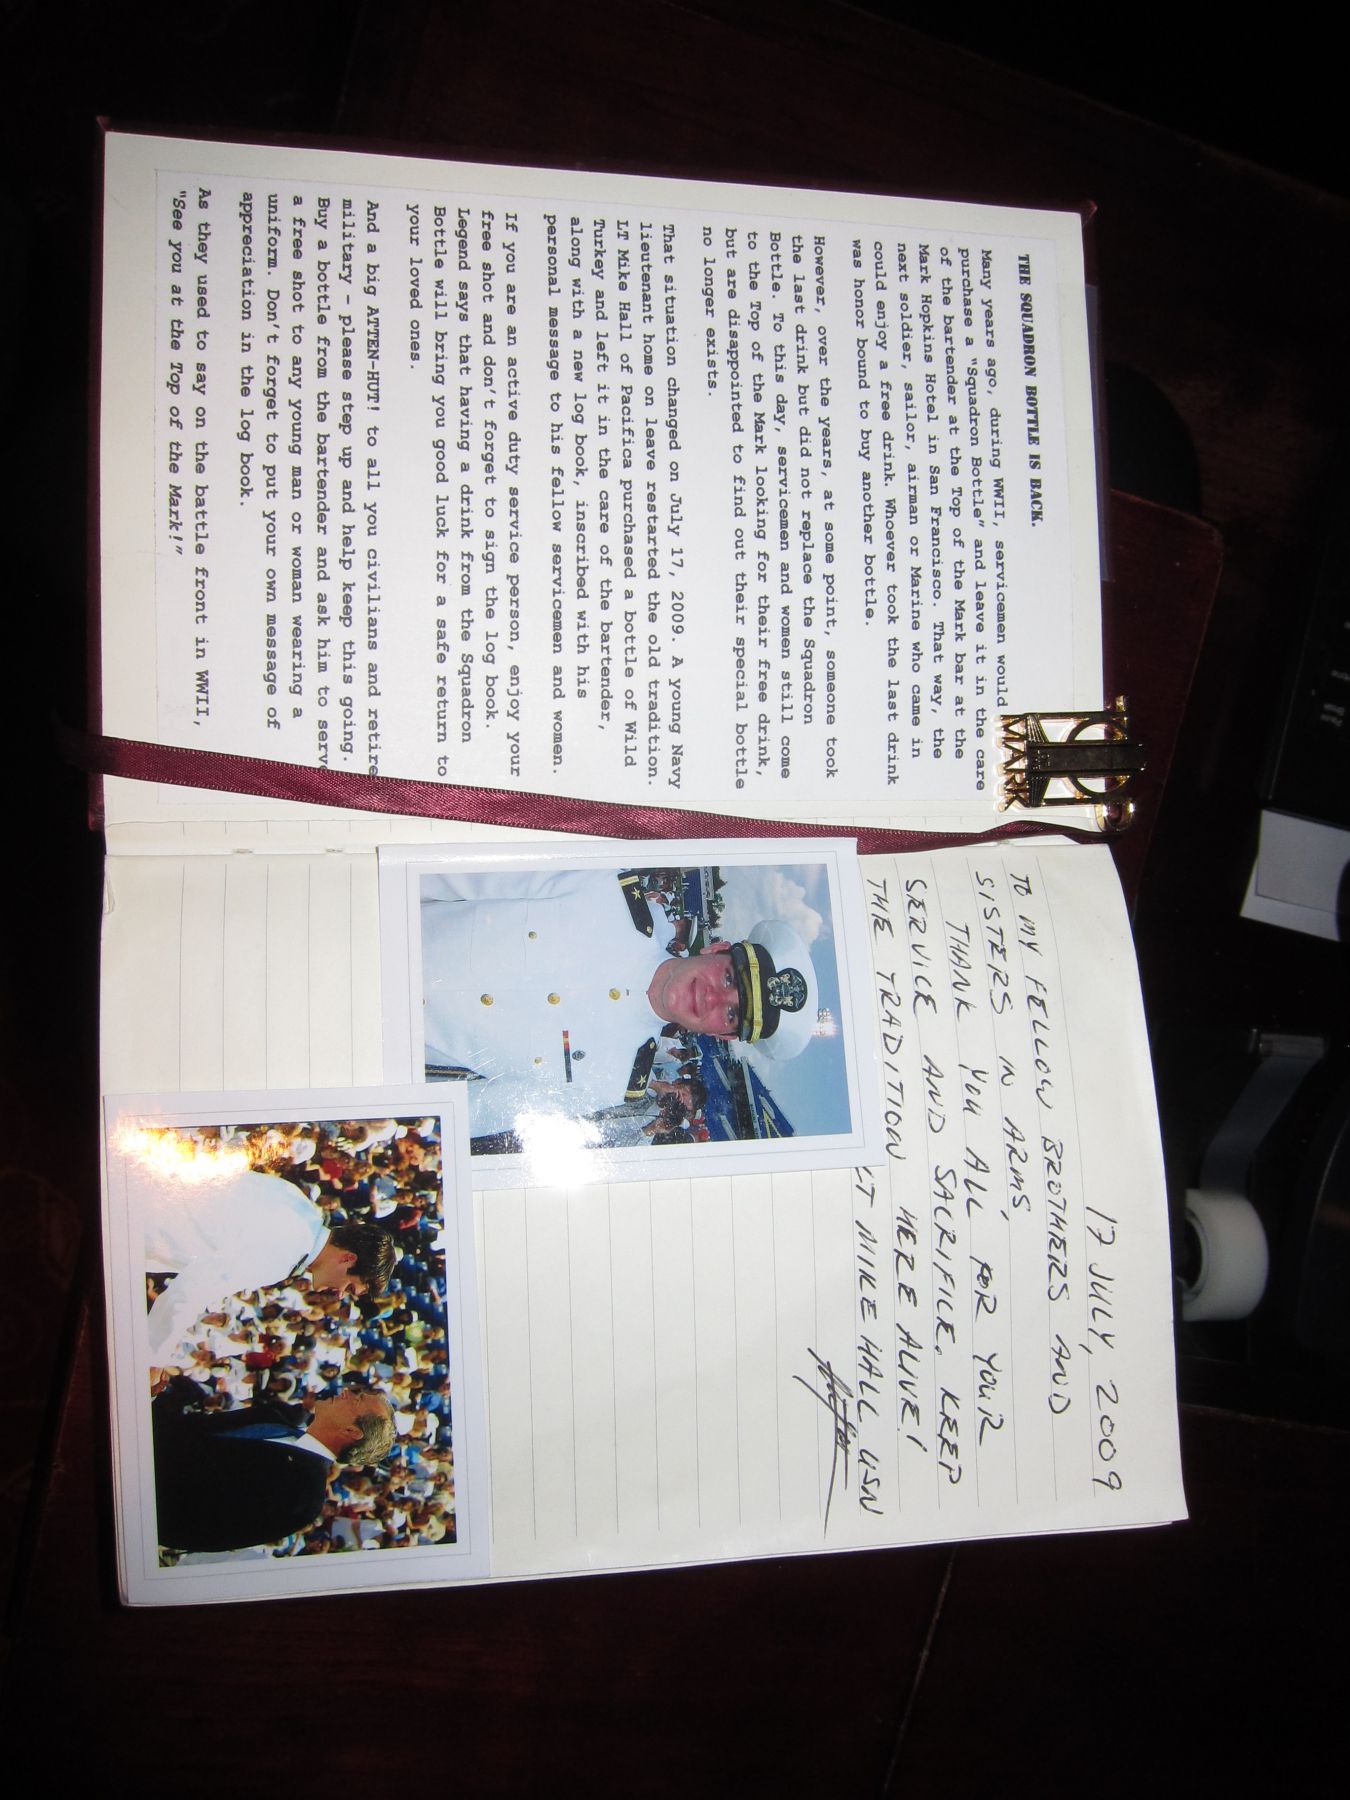 THE SQUADRON BOTTLE IS BACK.
Many years ago, during WWII, servicemen would
purchase a "Squadron Bottle" and leave it in the care
of the bartender at the Top of the Mark bar at the
Mark Hopkins Hotel in San Francisco. That way, the
next soldier, sailor, airman or Marine who came in
could enjoy a free drink. Whoever took the last drink
was honor bound to buy another bottle.
However, over the years, at some point, someone took
the last drink but did not replace the Squadron
Bottle. To this day, servicemen and women still come
to the Top of the Mark looking for their free drink,
but are disappointed to find out their special bottle
no longer exists.
That situation changed on July 17, 2009. A young Navy
lieutenant home on leave restarted the old tradition.
LT Mike Hall of Pacifica purchased a bottle of Wild
Turkey and left it in the care of the bartender,
along with a new log book, inscribed with his
personal message to his fellow servicemen and women.
If you are an active duty service person, enjoy your
free shot and don't forget to sign the log book.
Legend says that having a drink from the Squadron
Bottle will bring you good luck for a safe return to
your loved ones.
And a big ATTEN-HUT! to all you civilians and retire
military – please step up and help keep this going.
Buy a bottle from the bartender and ask him to serv
a free shot to any young man or woman wearing a
uniform. Don't forget to put your own message of
appreciation in the log book.
As they used to say on the battle front in WWII,
"See you at the Top of the Mark!"
MARK
17 JULY, 2009
TO MY FELLOW BROTHERS AND
SISTERS IN ARMS,
THANK YOU ALL FOR YOUR
SERVICE AND SACRIFICE. KEEP
THE TRADITION HERE ALIVE!
LT MIKE HALL USN